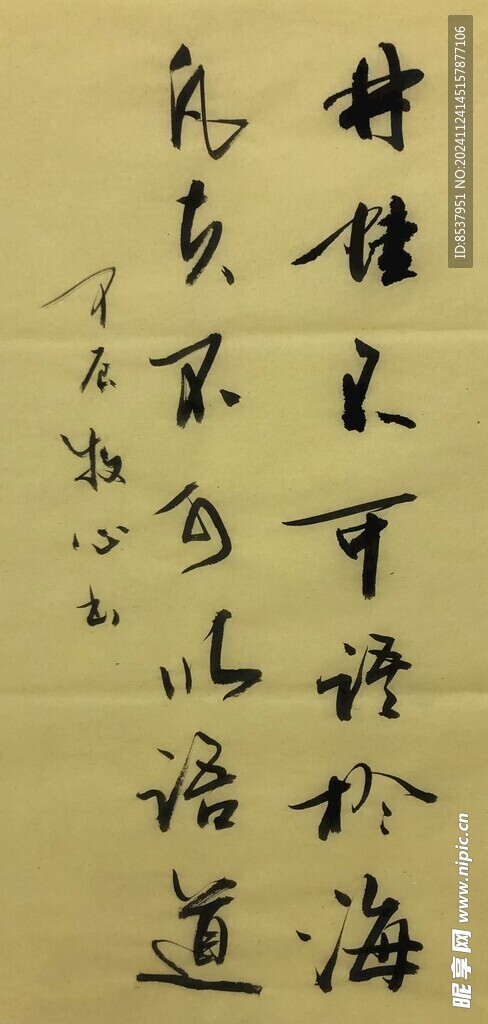 井蛙不可语於海
凡夫不可以语道
甲辰牧心书
ID:8537951 NO:20241124145157877106
昵享网 www.nipic.cn